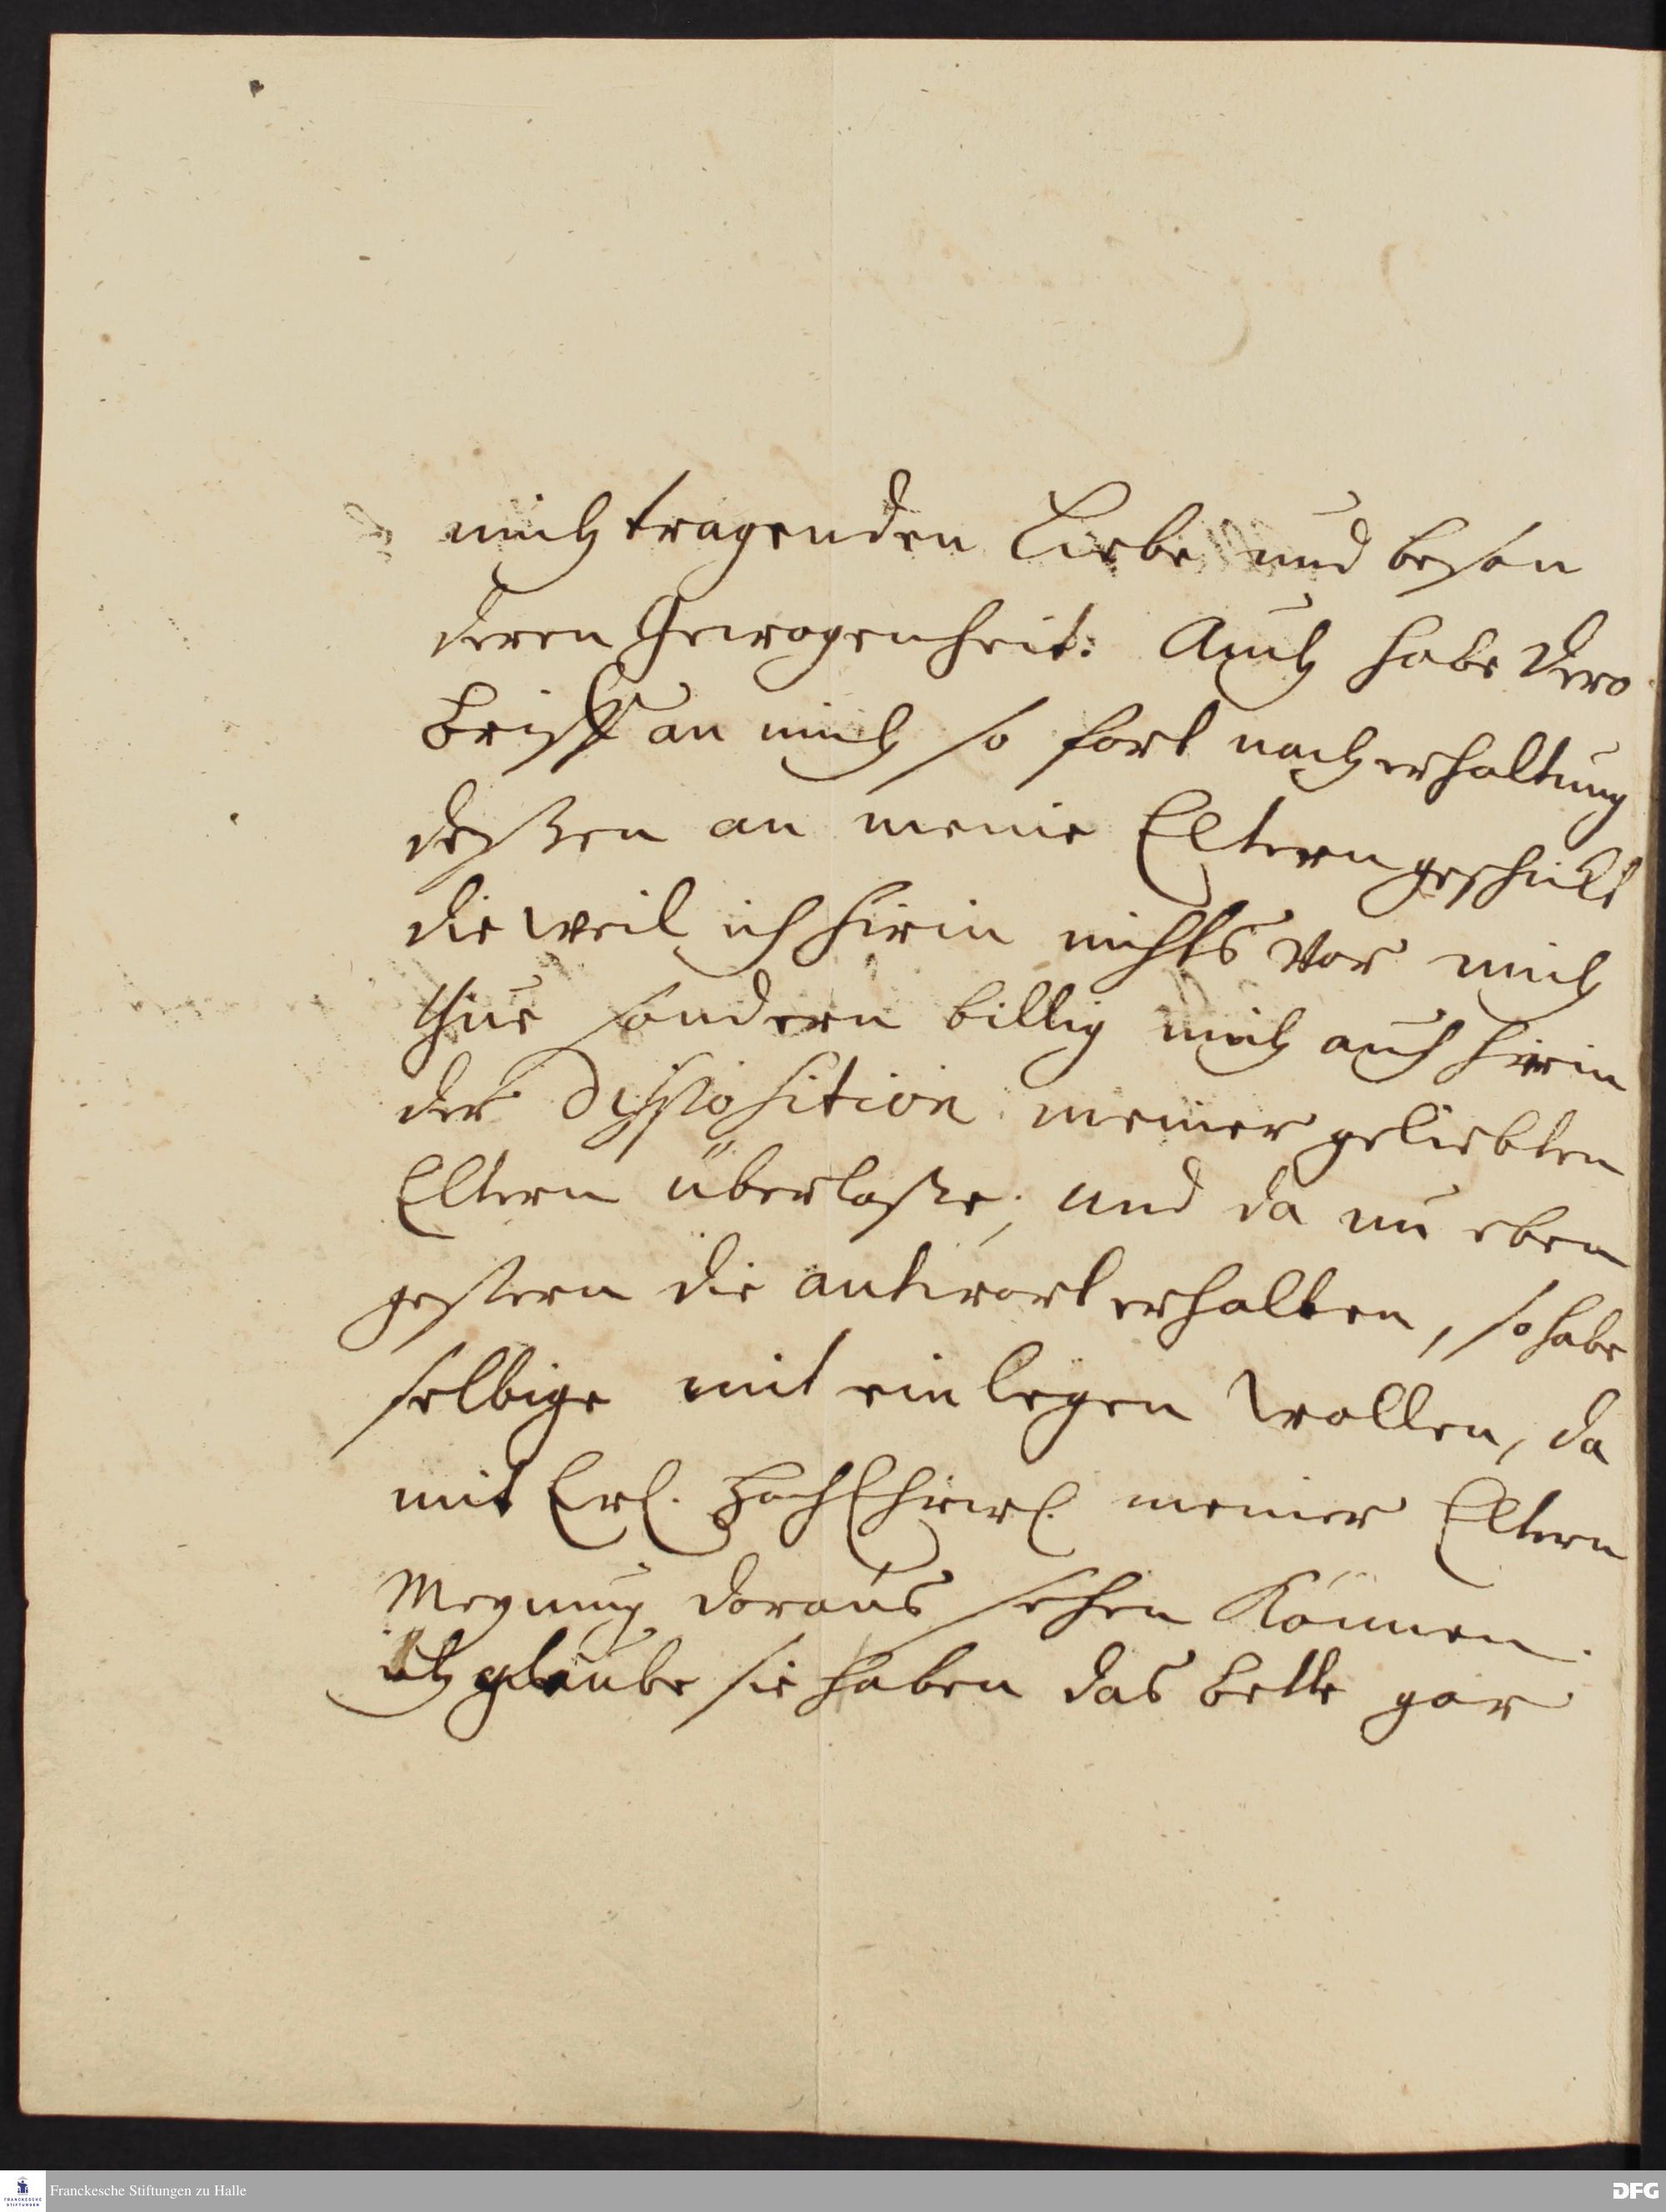 mich tragenden Liebe und beson
deren Gewogenheit: Auch habe dero
brieff an mich so fort nach erhaltung
deßen an meine Eltern geschickt
die weil ich hirin nichts vor mich
thue sondern billig mich auch hirin
der disposition meiner geliebten
Eltern überlaße; und da nu eben
gestern die antwort erhalten, so habe
selbige mit ein legen wollen, da
mit HochEhrw. meiner Eltern
Meynung daraus sehen können.
ich glaube sie haben das bette gar
Franckesche Stiftungen zu Halle
DFG